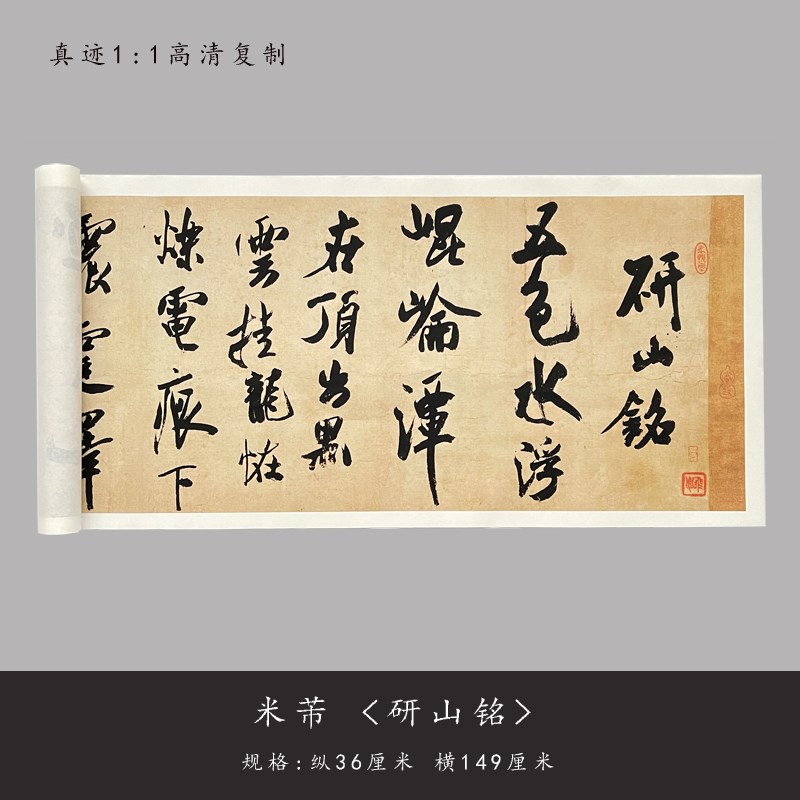 真迹1:1高清复制
研山銘
五色水浮
崐崘潭
在頂出黑
雲挂龍恠
爍電痕下
震霆
米芾 <研山铭>
规格:纵36厘米 横149厘米